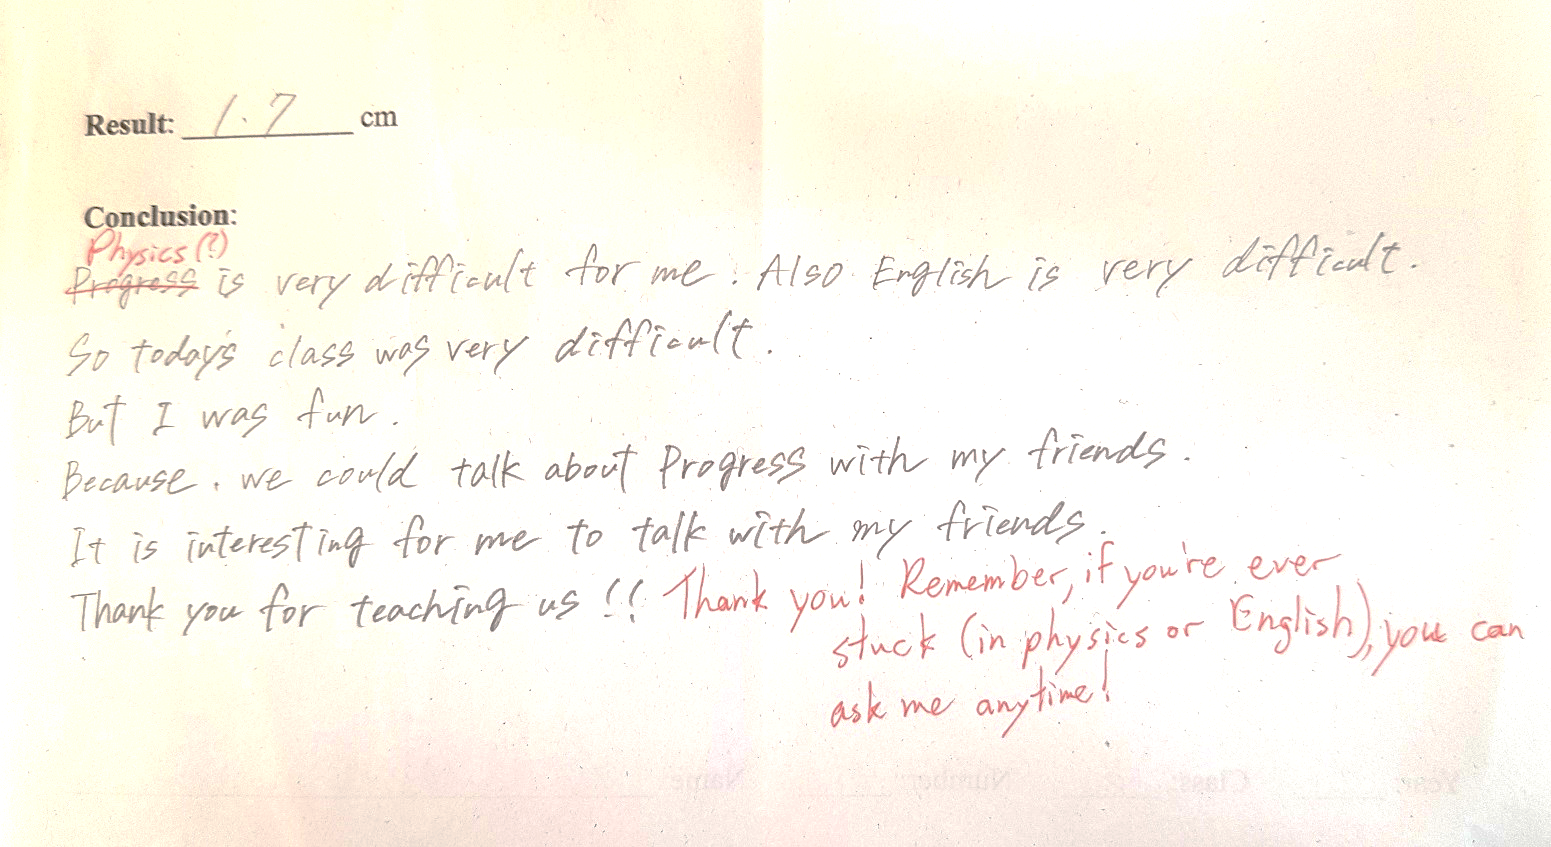 Result: 1.7 cm
Conclusion:
Physics (?)
Progress is very difficult for me. Also English is very difficult.
So today's class was very difficult.
But I was fun.
Because, we could talk about Progress with my friends.
It is interesting for me to talk with my friends.
Thank you for teaching us !! Thank you! Remember, if you're ever
stuck (in physics or English), you can
ask me anytime!
Year: Class: Number: Name: